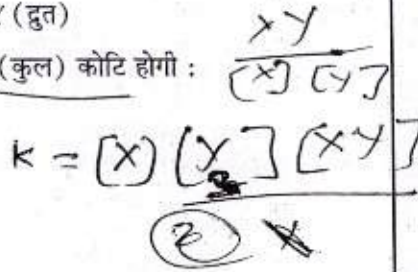 (द्रुत)
(कुल) कोटि होगी :
XY
[X] [Y]
K = [X] [Y] [XY]
2